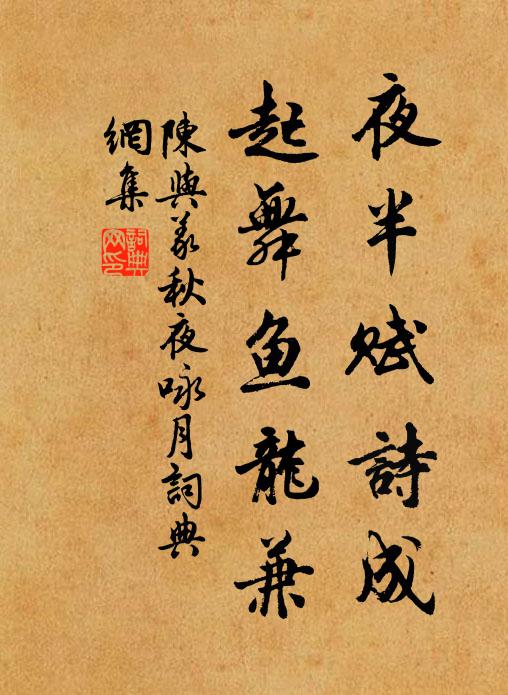 夜半賦詩成
起舞鱼龍兼
陳與義秋夜咏月詞典
網集
詞典
网印